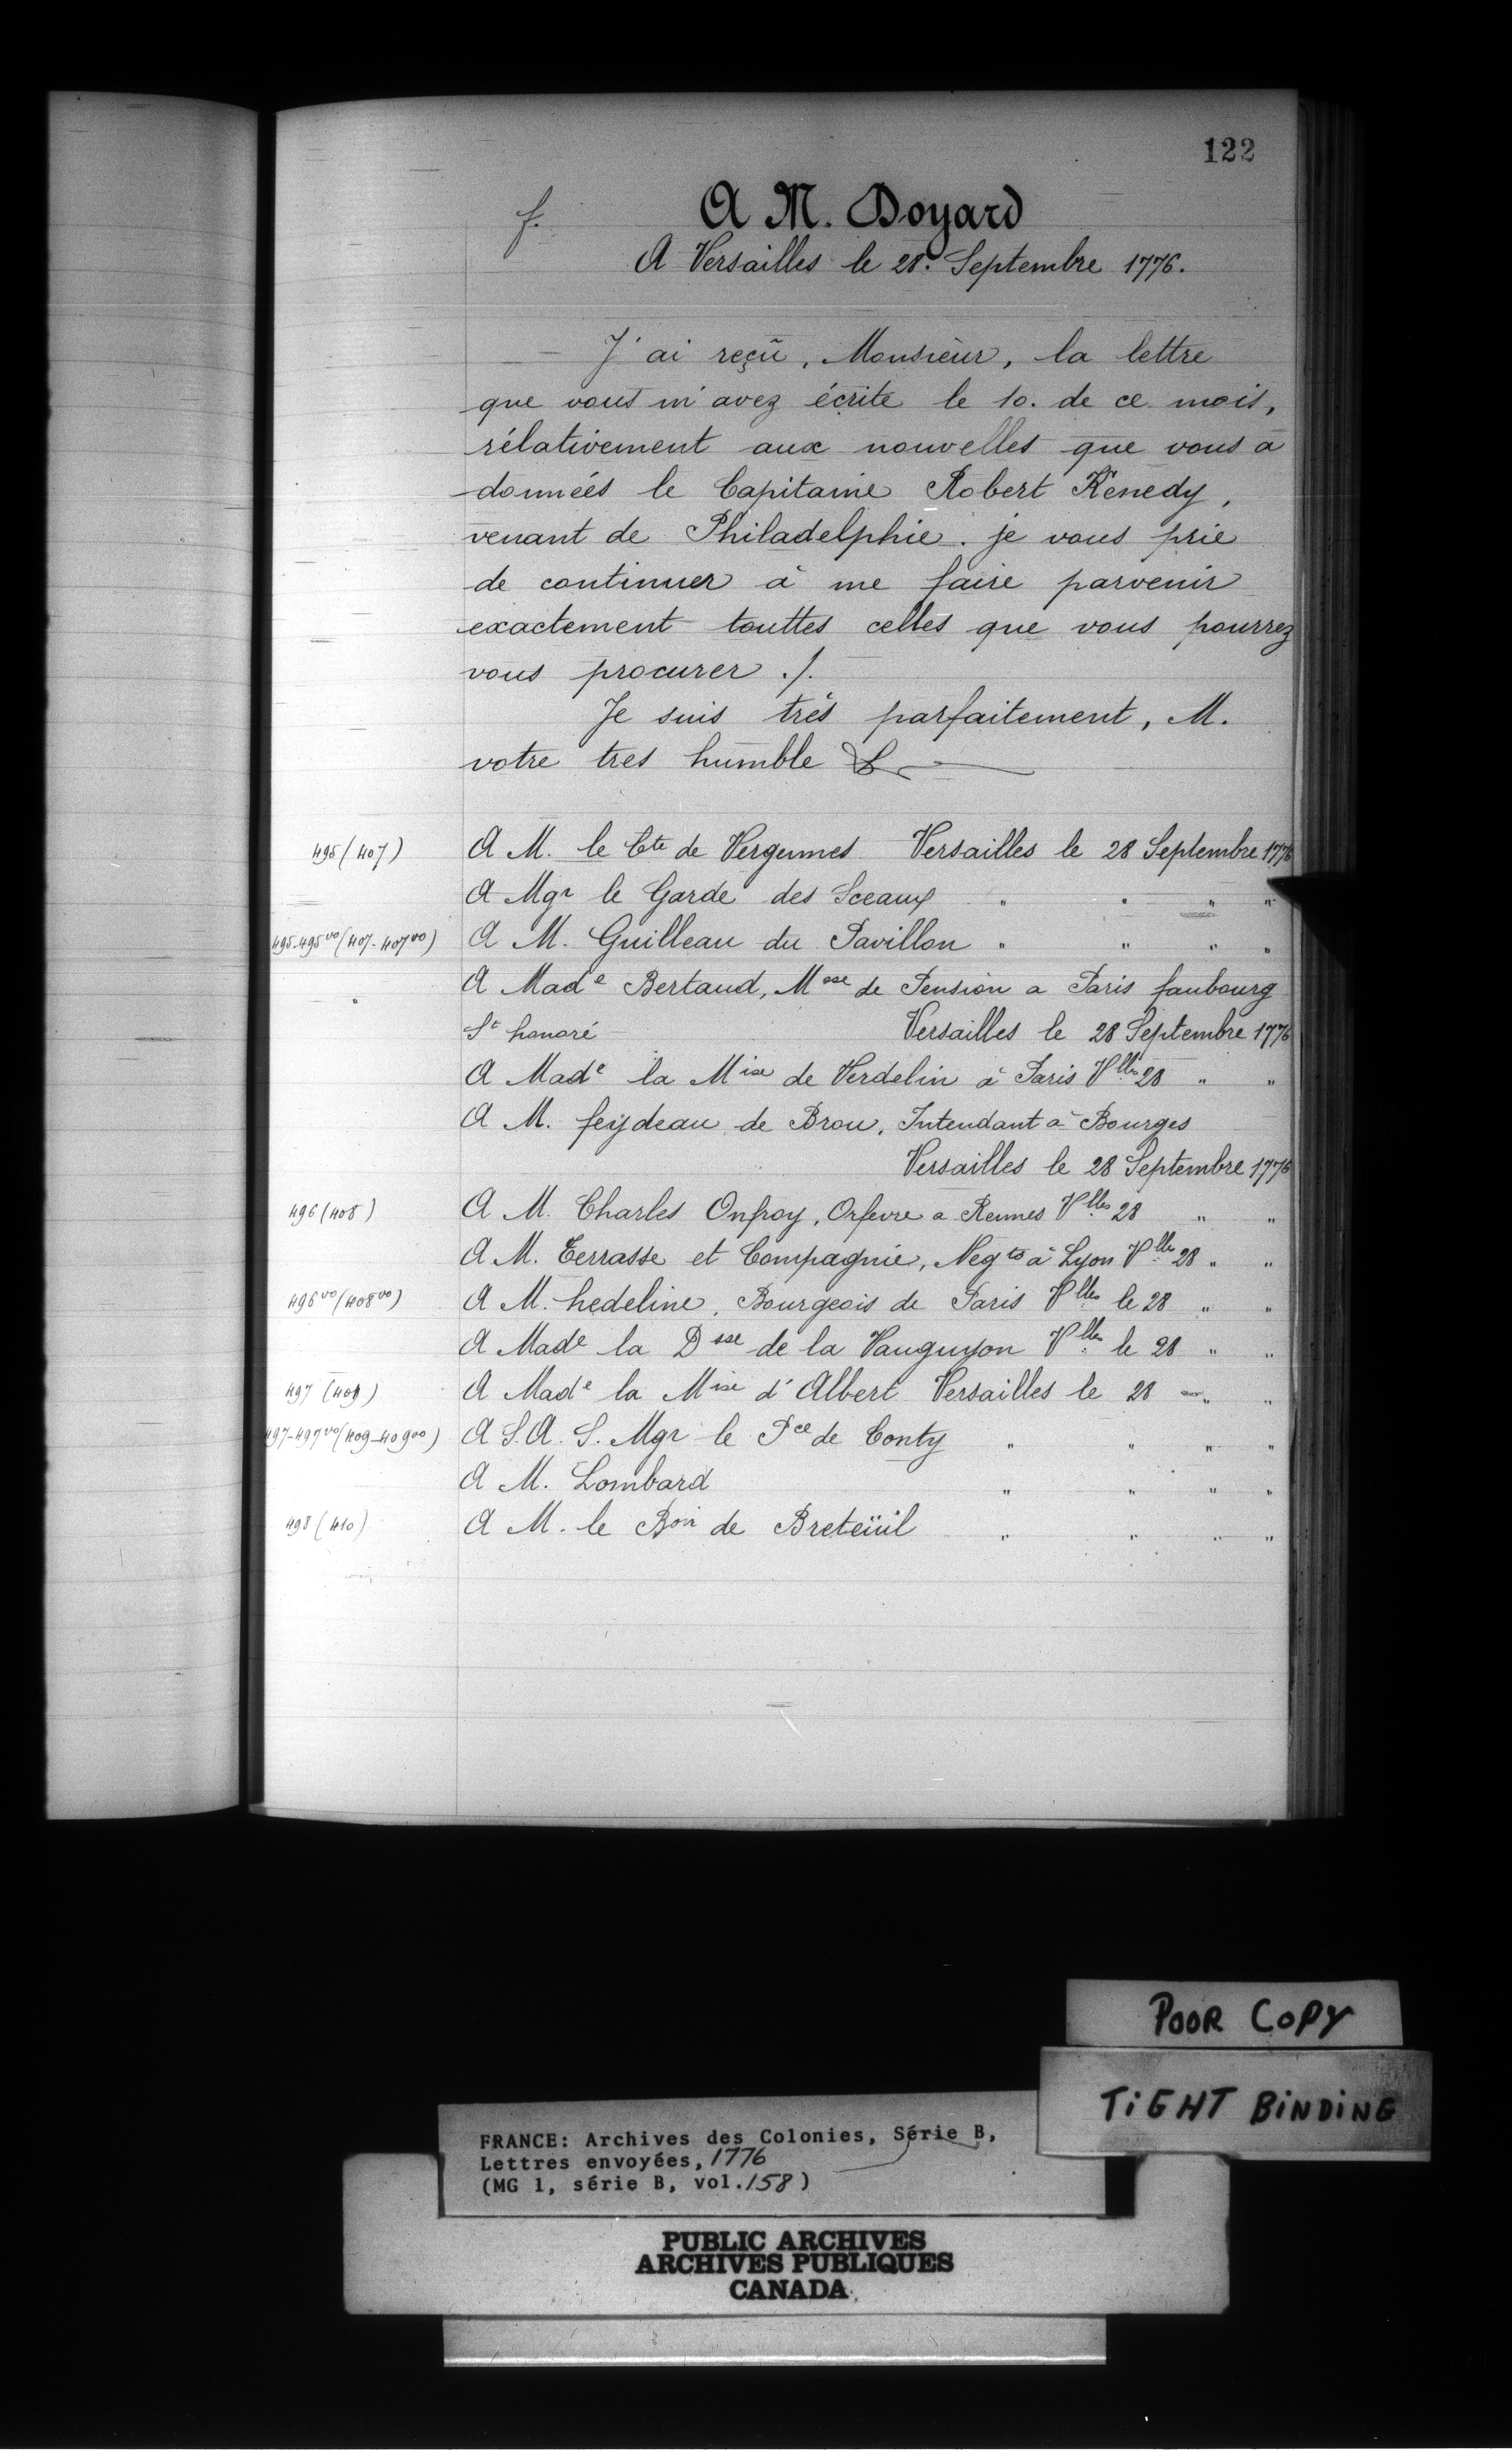 122
f.
A M. Doyard
A Versailles le 28. Septembre 1776.
J'ai reçû, Monsieur, la lettre
que vous m'avez écrite le 10. de ce mois,
rélativement aux nouvelles que vous a
données le Capitaine Robert Kenedy,
venant de Philadelphie. je vous prie
de continuer à me faire parvenir
exactement touttes celles que vous pourrez
vous procurer ./.
Je suis très parfaitement, M.
votre tres humble &
495 (407) A M. le Cte de Vergennes Versailles le 28 Septembre 1776
A Mgr le Garde des Sceaux " " " "
495-495 vo (407-407 vo) A M. Guilleau du Pavillon " " " "
A Made Bertaud, Msse de Pension a Paris faubourg
St honoré Versailles le 28 Septembre 1776
A Made la Mise de Verdelin à Paris Vlles 28 " "
A M. feydeau de Brou, Intendant à Bourges
Versailles le 28 Septembre 1776
496 (408) A M. Charles Onfroy, Orfevre a Rennes Vlles 28 " "
A M. Terrasse et Compagnie, Negts à Lyon Vlles 28 " "
496 vo (408 vo) A M. hedeline, Bourgeois de Paris Vlles le 28 " "
A Made la Dsse de la Vauguyon Vlles le 28 " "
497 (409) A Made la Mise d'Albert Versailles le 28 " "
497-497 vo (409-409 vo) A S. A. S. Mgr le Pce de Conty " " " "
A M. Lombard " " " "
498 (410) A M. le Bon de Breteüil " " " "
POOR COPY
TiGHT BiNDiNG
FRANCE: Archives des Colonies, Série B,
Lettres envoyées, 1776
(MG 1, série B, vol. 158)
PUBLIC ARCHIVES
ARCHIVES PUBLIQUES
CANADA